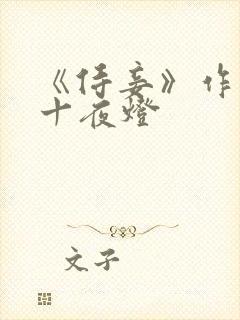 《侍妾》作
十夜燈
文子